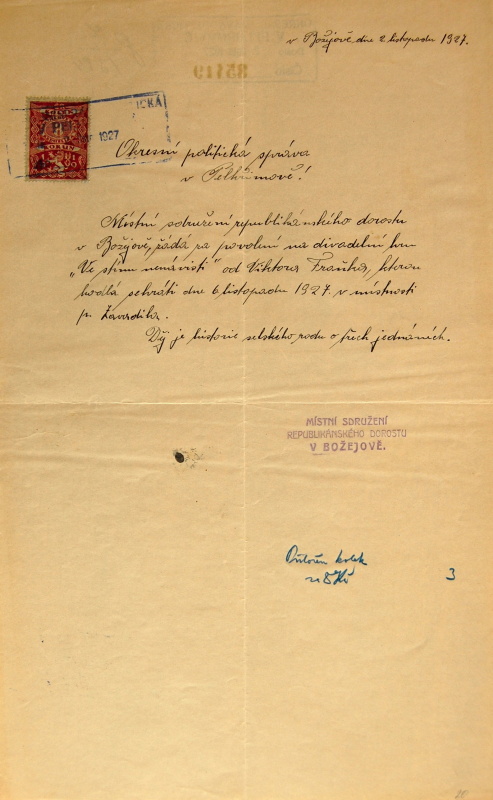 v Božejově dne 2 listopadu 1927.
35119
1927
Okresní politická správa
v Pelhřimově!
Místní sdružení republikánského dorostu
v Božejově, žádá za povolení na divadelní hru
„Ve stínu nenávisti" od Viktora Fraňka, kterou
hodlá sehráti dne 6 listopadu 1927. v místnosti
p. Zavadila.
Děj je historie selského rodu o třech jednáních.
MÍSTNÍ SDRUŽENÍ
REPUBLIKÁNSKÉHO DOROSTU
V BOŽEJOVĚ.
Přiložen kolek
za 5 Kč
3